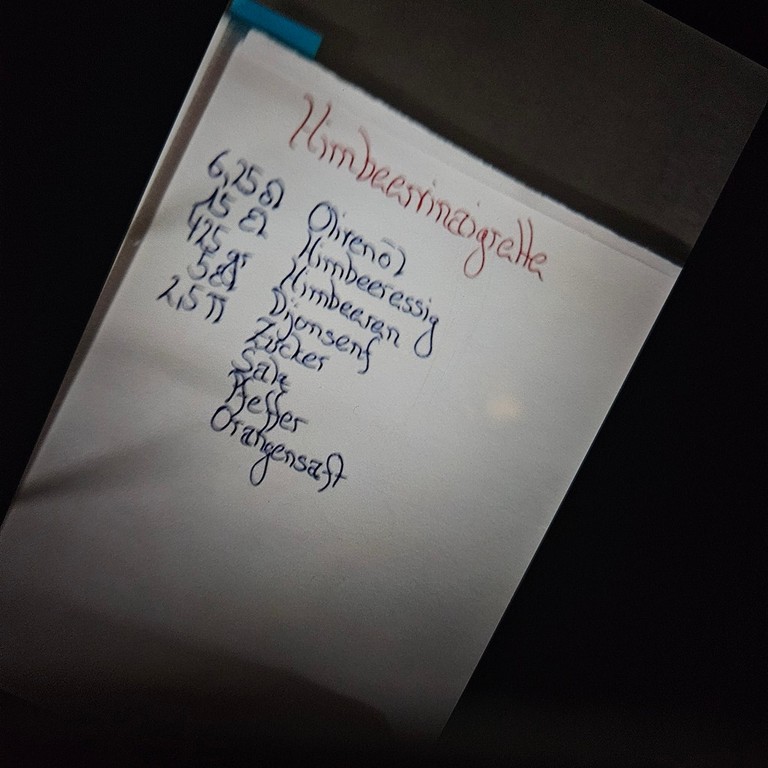 Himbeervinaigrette
6,25 El Olivenöl
15 El Himbeeressig
425 gr Himbeeren
5 El Dijonsenf
2,5 Tl Zucker
Salz
Pfeffer
Orangensaft